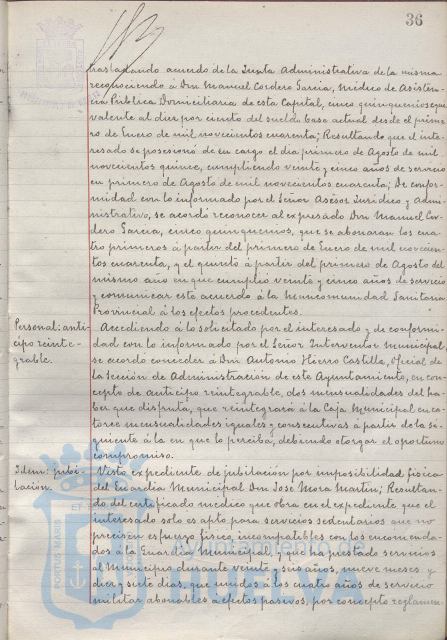 36
trasladando acuerdo de la Junta Administrativa de la misma
reconociendo á Don Manuel Cordero Garcia, Médico de Asisten-
cia Pública Domiciliaria de esta Capital, cinco quinquenios equi
valente al diez por ciento del sueldo base actual desde el prime
ro de Enero de mil novecientos cuarenta; Resultando que el inte-
resado se posesionó de su cargo el dia primero de Agosto de mil
novecientos quince, cumpliendo veinte y cinco años de servicio
en primero de Agosto de mil novecientos cuarenta; De confor-
midad con lo informado por el Señor Asesor Juridico y Admi-
nistrativo, se acordó reconocer al expresado Don Manuel Cor
dero Garcia, cinco quinquenios, que se abonaran los cua
tro primeros á partir del primero de Enero de mil novecien-
tos cuarenta, y el quinto á partir del primero de Agosto del
mismo año en que cumplió veinte y cinco años de servicio
y comunicar este acuerdo á la Mancomunidad Sanitaria
Provincial á los efectos procedentes.
Personal: anti-
cipo reinte-
grable.
Accediendo á lo solicitado por el interesado y de conformi-
dad con lo informado por el Señor Interventor municipal,
se acordo conceder á Don Antonio Hierro Castilla, Oficial de
la Sección de Administración de este Ayuntamiento, en con-
cepto de anticipo reintegrable, dos mensualidades del ha-
ber que disfruta, que reintegrará á la Caja Municipal en ca
torce mensualidades iguales y consecutivas á partir de la si-
guiente á la en que lo perciba, debiendo otorgar el oportuno
compromiso.
Idem: jubi-
lación.
Visto expediente de jubilación por imposibilidad fisica
del Guardia Municipal Don José Mora Martin; Resultan-
do del certificado médico que obra en el expediente que el
interesado solo es apto para servicios sedentarios que no
precisen esfuerzo fisico, incompatibles con los encomenda-
dos á la Guardia Municipal, y que ha prestado servicios
al Municipio durante veinte y seis años, nueve meses y
diez y siete dias, que unidos á los cuatro años de servicio
militar abonables á efectos pasivos, por concepto reglamen
Ayuntamiento de
HUELVA
PORTUS MARIS